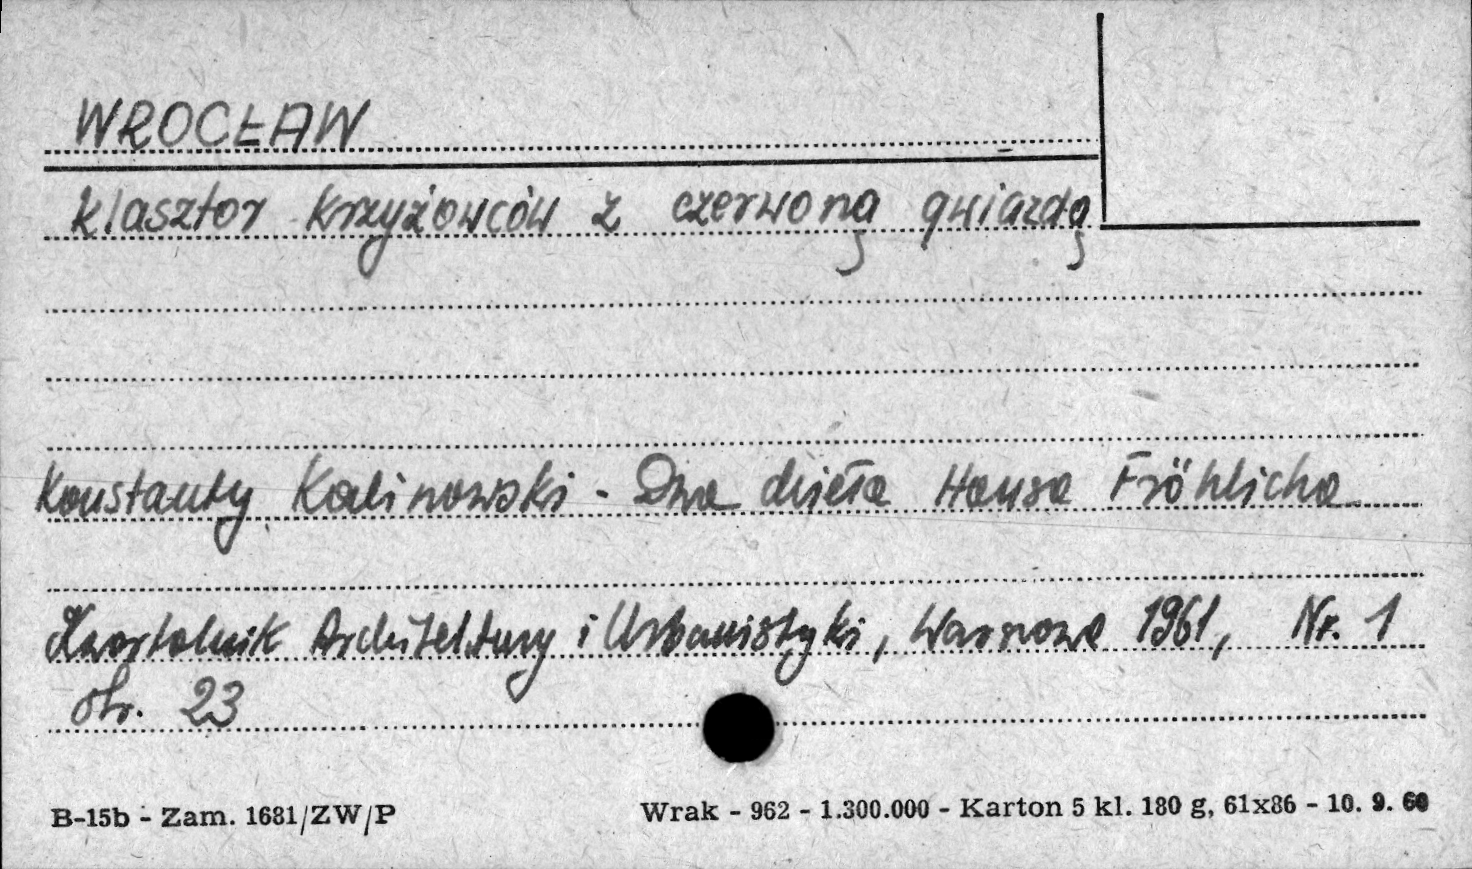 WROCŁAW
klasztor krzyżowców z czerwoną gwiazdą
Konstanty Kalinowski - Dwa dzieła Hansa Fröhlicha
Kwartalnik Architektury i Urbanistyki, Warszawa 1961, Nr. 1
str. 23
B-15b - Zam. 1681/ZW/P
Wrak - 962 - 1.300.000 - Karton 5 kl. 180 g, 61x86 - 10. 9. 60